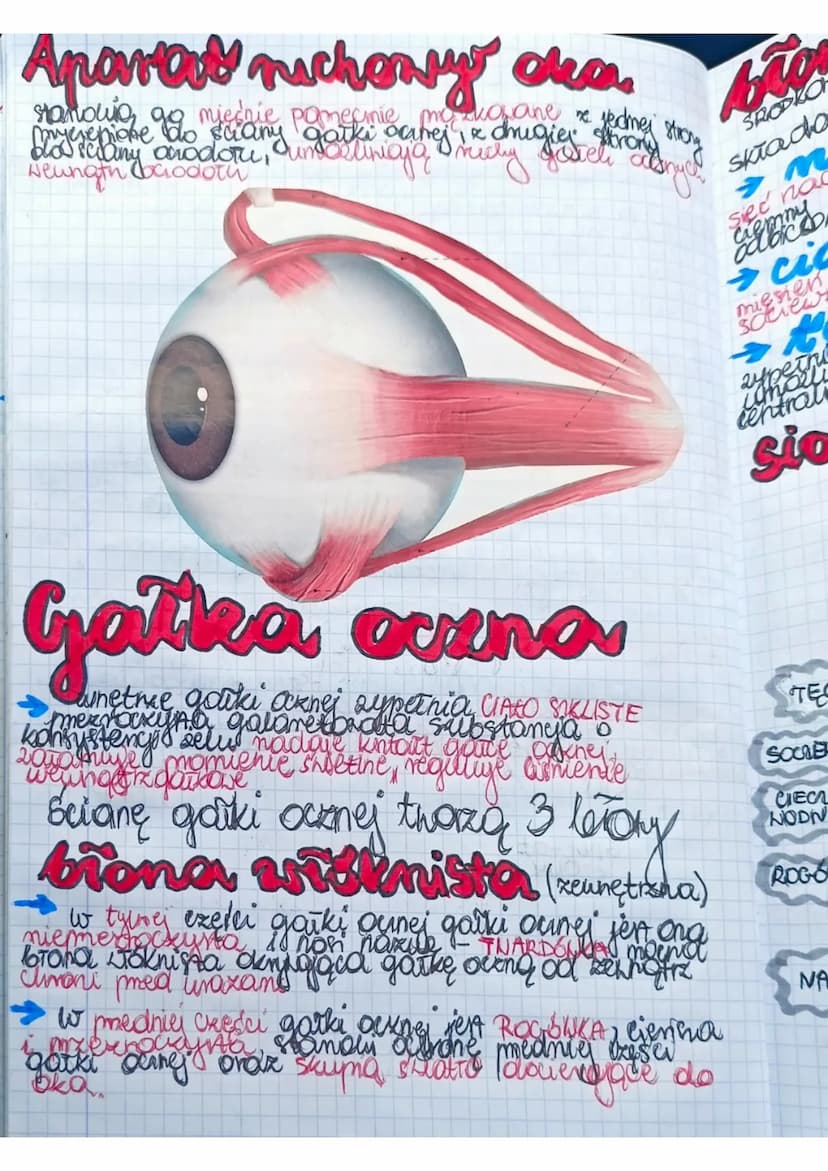 Aparat ruchowy oka
stanowią go mięśnie poprzecznie prążkowane z jednej strony
przyczepione do ściany gałki ocznej, z drugiej strony
dla ściany oczodołu, umożliwiają ruchy gałek ocznych
wewnątrz oczodołu
Gałka oczna
→ wnętrze gałki ocznej wypełnia CIAŁO SZKLISTE
przezroczysta galaretowata substancja o
konsystencji żelu, nadaje kształt gałce ocznej,
załamuje promienie świetlne, reguluje ciśnienie
wewnątrzgałkowe
Ścianę gałki ocznej tworzą 3 błony
błona włóknista (zewnętrzna)
→ w tylnej części gałki ocznej gałki ocznej jest ona
nieprzezroczysta i nosi nazwę - TWARDÓWKA mocna
błona włóknista okrywająca gałkę oczną od zewnątrz
chroni przed urazami
→ W przedniej części gałki ocznej jest ROGÓWKA, cienka
i przezroczysta, stanowi ochronę przedniej części
gałki ocznej oraz skupia światło docierające do
oka.
składa
→
sieć nac
ciemny
→ cia
mięsień
→
wypełni
umożli
central
TĘC
SOCZE
CIECZ
WODN
ROGÓ
NA